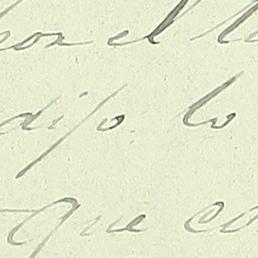 por el
dijo lo
que co